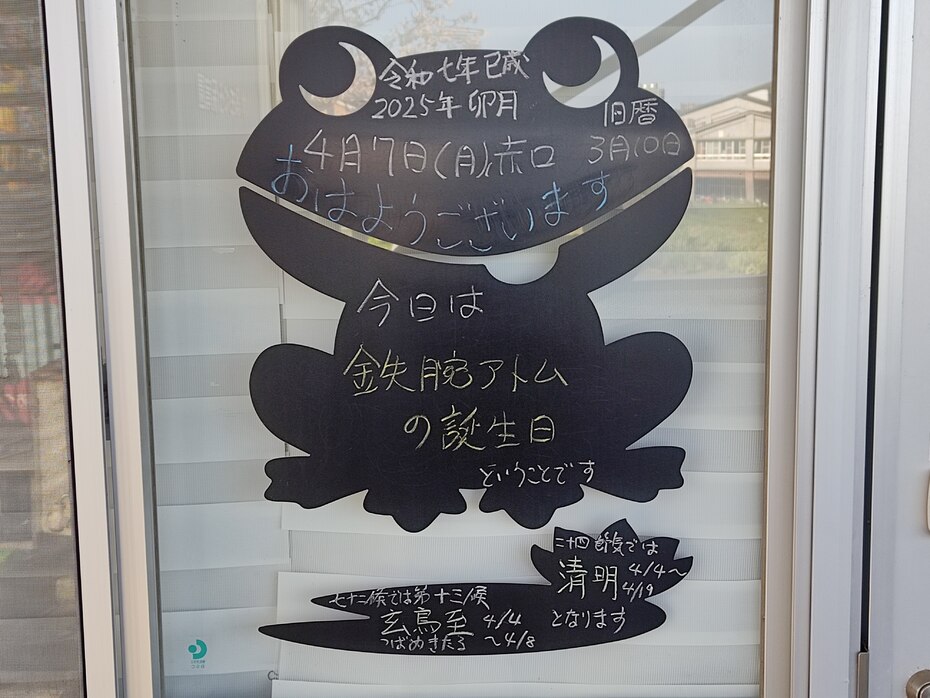 令和七年巳歳
2025年 卯月
旧暦
4月7日(月)赤口 3月10日
おはようございます
今日は
鉄腕アトム
の誕生日
ということです
二十四節気では
清明 4/4～
4/19
となります
七十二候では第十三候
玄鳥至 4/4
つばめきたる ～4/8